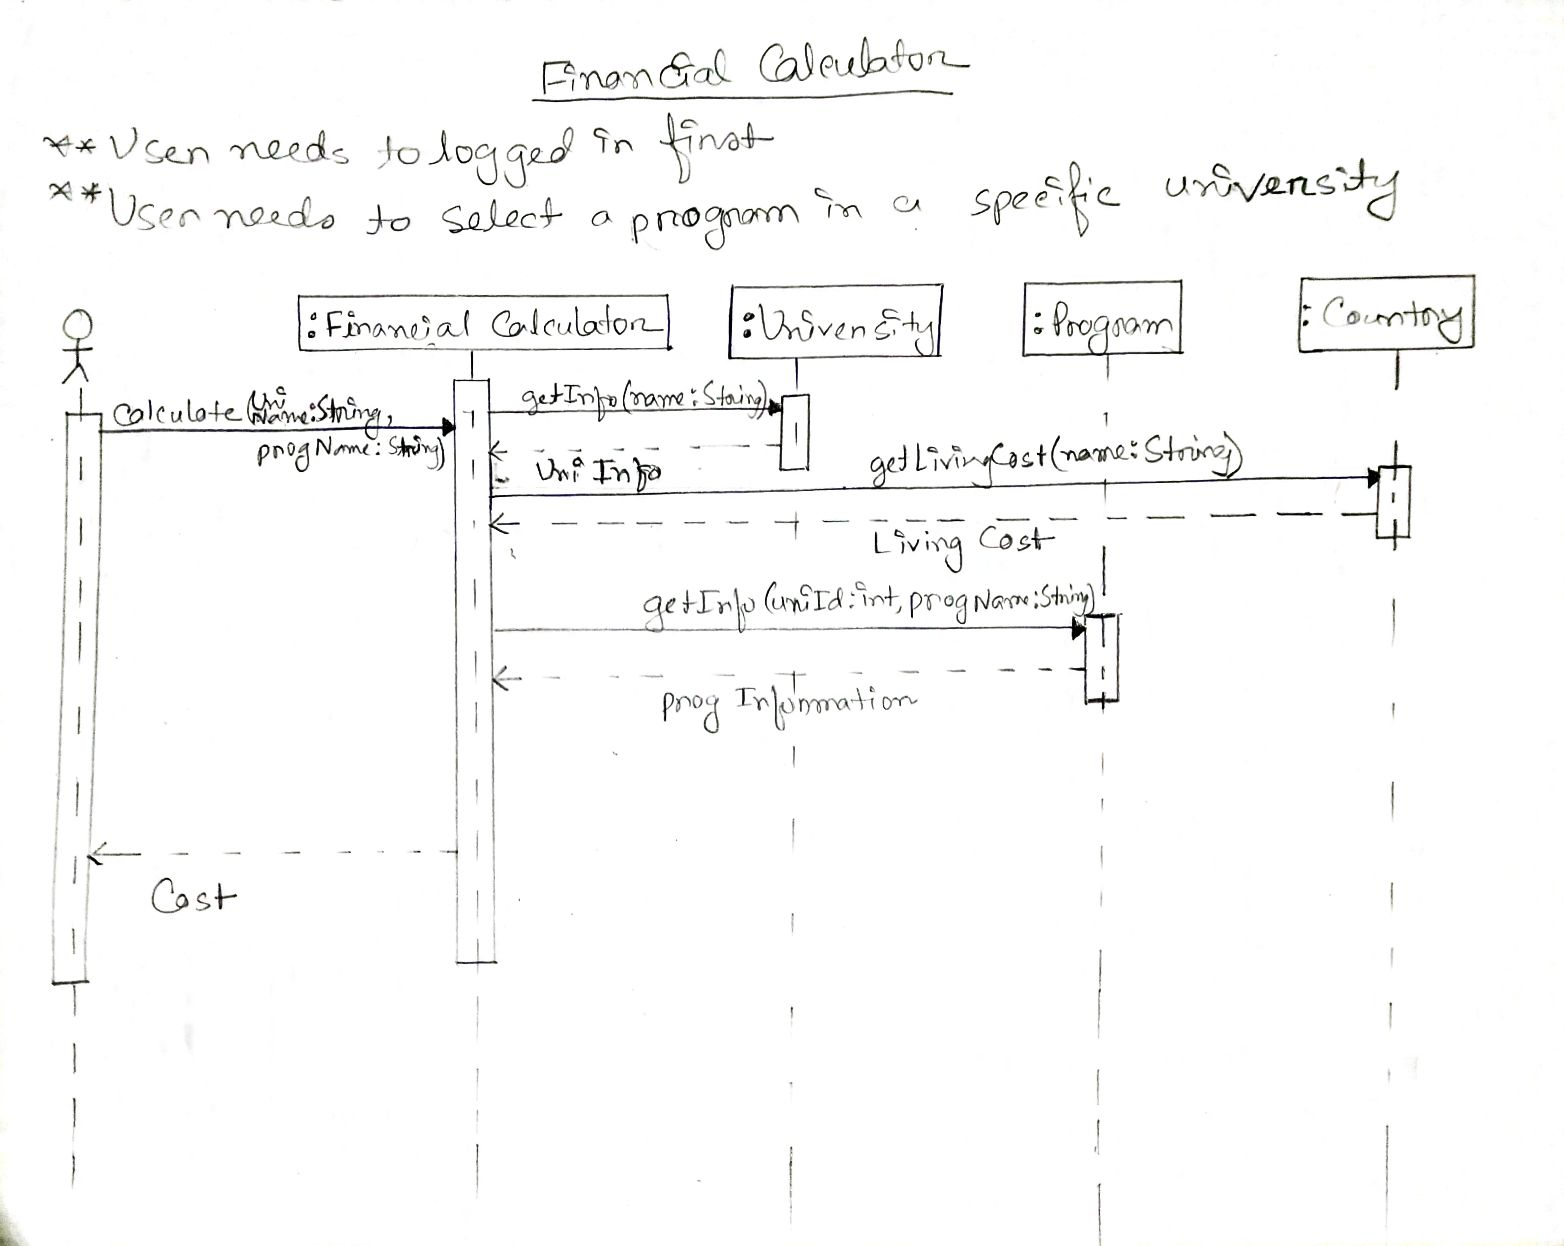 Financial Calculator
** User needs to logged in first
** User needs to select a program in a specific university
:Financial Calculator
:University
:Program
:Country
Calculate(Uni Name:String,
progName:String)
getInfo(name:String)
Uni Info
getLivingCost(name:String)
Living Cost
getInfo(uniId:int, progName:String)
prog Information
Cost